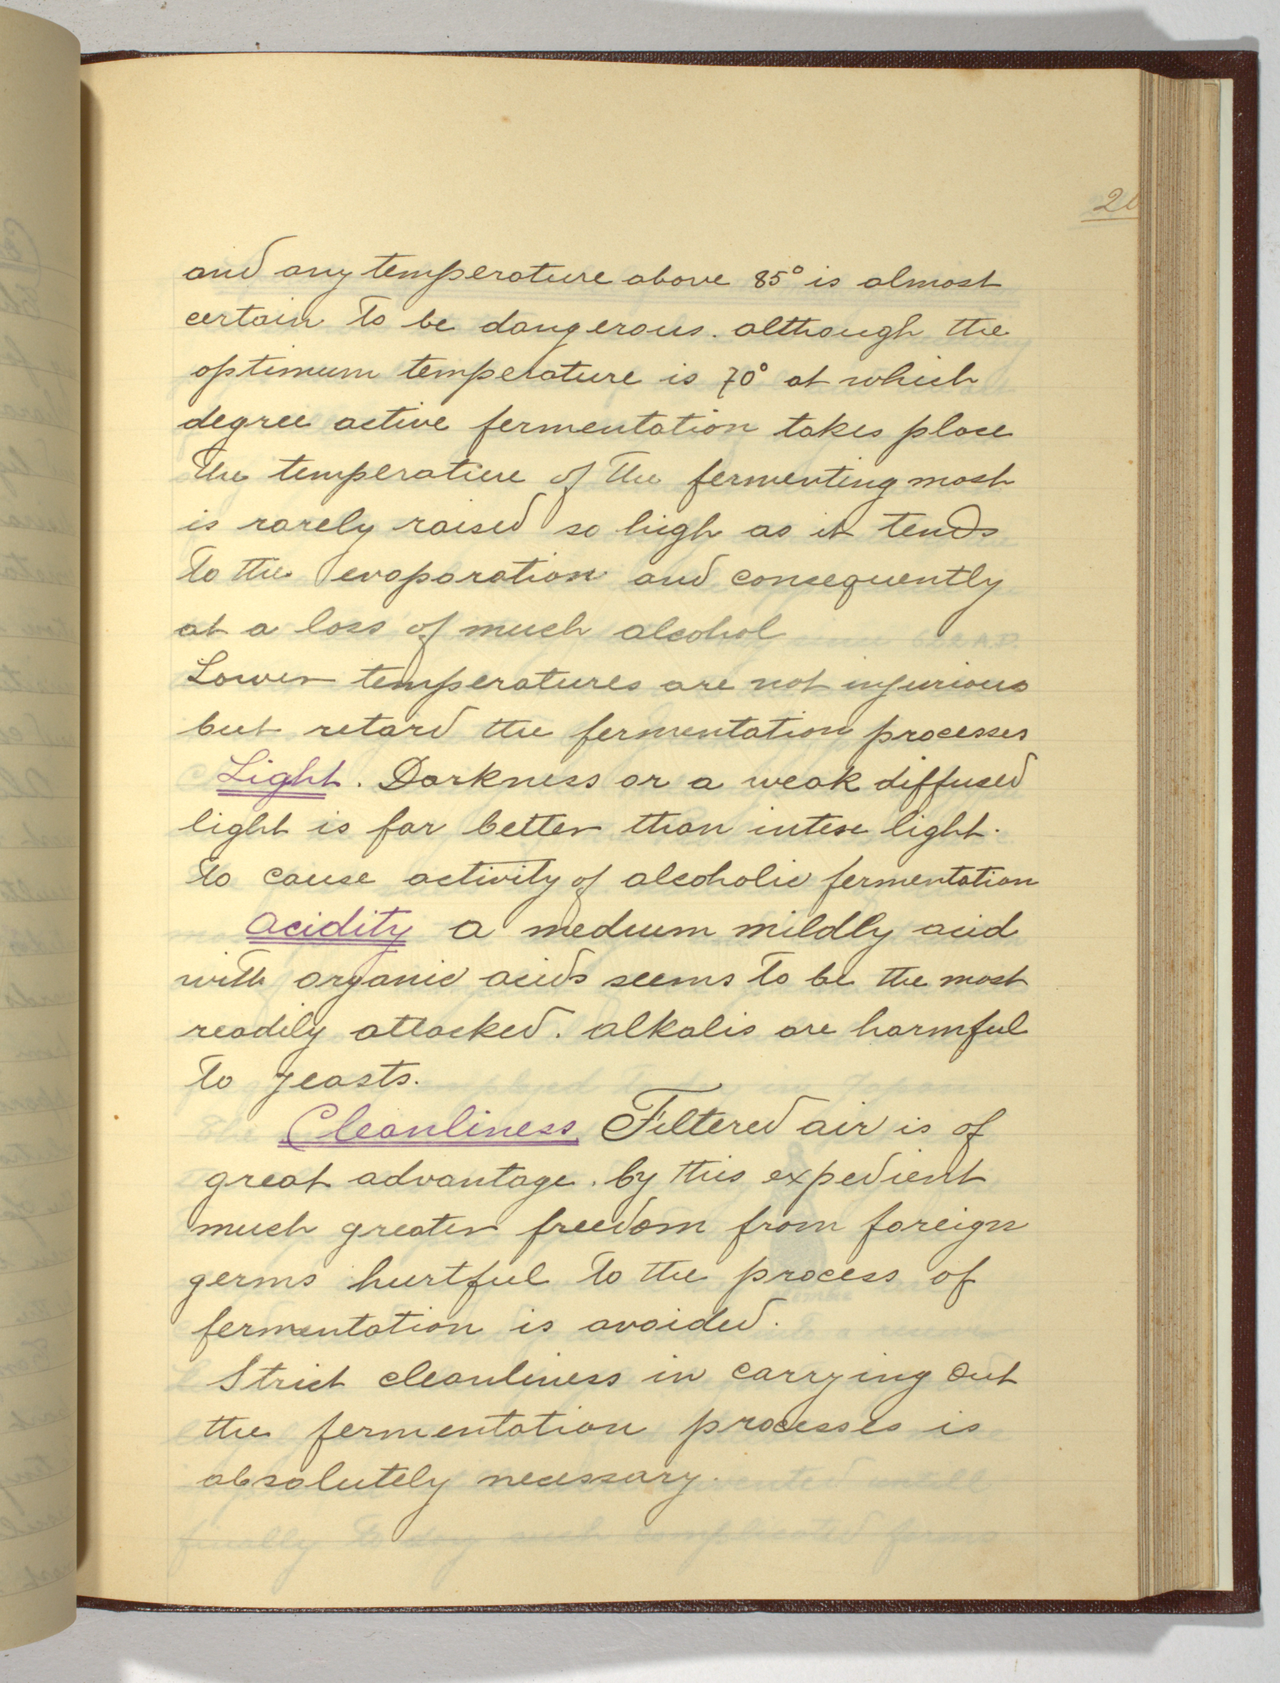 and any temperature above 85° is almost
certain to be dangerous. although the
optimum temperature is 70° at which
degree active fermentation takes place
The temperature of the fermenting mash
is rarely raised so high as it tends
to the evaporation and consequently
at a loss of much alcohol
Lower temperatures are not injurious
but retard the fermentation processes
Light. Darkness or a weak diffused
light is far better than intese light.
to cause activity of alcoholic fermentation
Acidity A medium mildly acid
with organic acids seems to be the most
readily attacked. alkalis are harmful
to yeasts.
Cleanliness Filtered air is of
great advantage. by this expedient
much greater freedom from foreign
germs hurtful to the process of
fermentation is avoided.
Strict cleanliness in carrying out
the fermentation processes is
absolutely necessary.